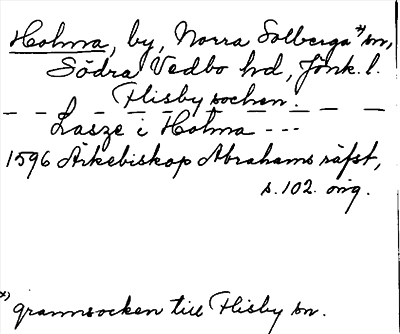 Holma, by, Norra Solberga *) sn,
Södra Vedbo hd, Jönk. l.
Flisby socken.
Lasze i Holma ---
1596 Ärkebiskop Abrahams räfst,
s. 102. orig.
*) grannsocken till Flisby sn.